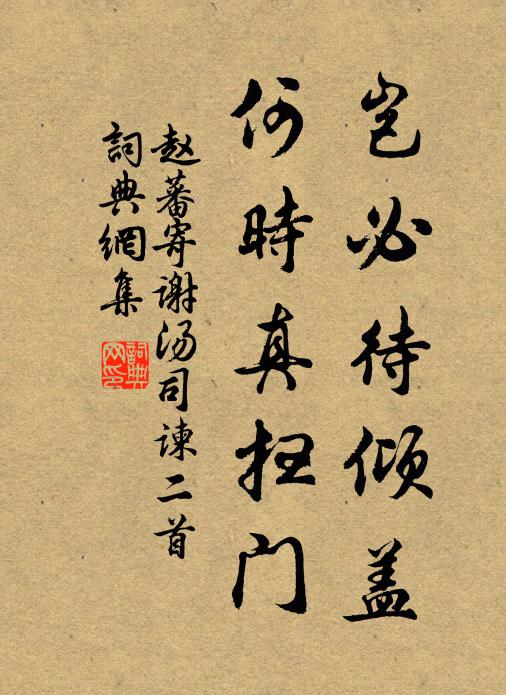 岂必待倾盖
何時真扫门
赵蕃寄謝汤司諫二首
詞典網集
詞典网印